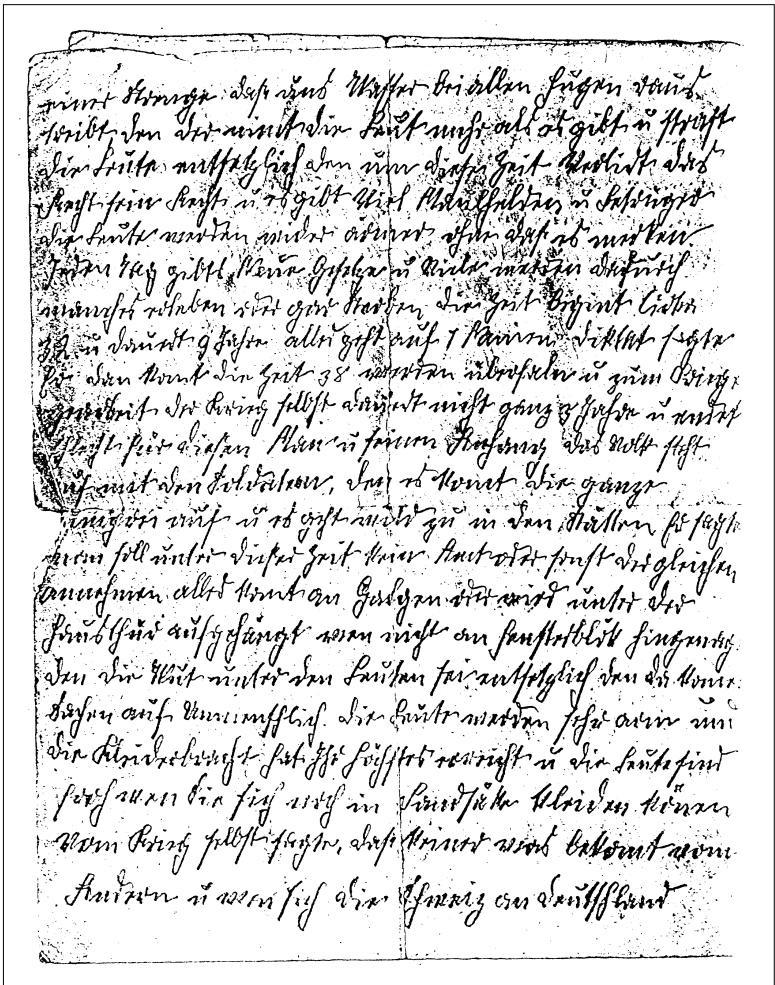 einer Strenge daß uns Wasser bei allen Fugen raus
treibt, den der nimt die Leut mehr als es gibt u straft
die Leute entsetzlich den um diese Zeit Verlirt das
Recht sein Recht u es gibt Viel Maulhelden u Betrüger
die Leute werden wider ärmer ohne daß is merken
Jeden Tag gibts Neue Gesetze u Viele werden dadurch
manches erleben oder gar sterben, die Zeit begint
32 u dauert 9 Jahre alles geht auf 1 Mannes Diktat sagte
Er dan komt die Zeit 38 werden überfaln u zum Krieg
gearbeit. der Krieg selbst dauert nicht ganz 3 Jahre u endet
schlecht für diesen Man u seinen Anhang das Volk steht
auf mit den Soldaten, den es komt die ganze
auf u es geht wild zu in den Stätten Er sagt
man soll unter dieser Zeit kein Amt oder sonst dergleichen
annehmen alles komt an Galgen oder wird unter der
Hausthür aufgehängt wen nicht an Fensterblök hingenag
den die Wut unter den Leuten sei entsetzlich den da kome
Sachen auf Unmenschlich. die Leute werden sehr arm und
die Kleiderbracht hat Ihr höchstes erreicht u die Leute sind
froh wen Sie sich noch in Sandsäke kleiden könen
Vom Krieg selbst sagte, daß keiner was bekomt vom
Andern u wen sich die Schweiz an Deutschland